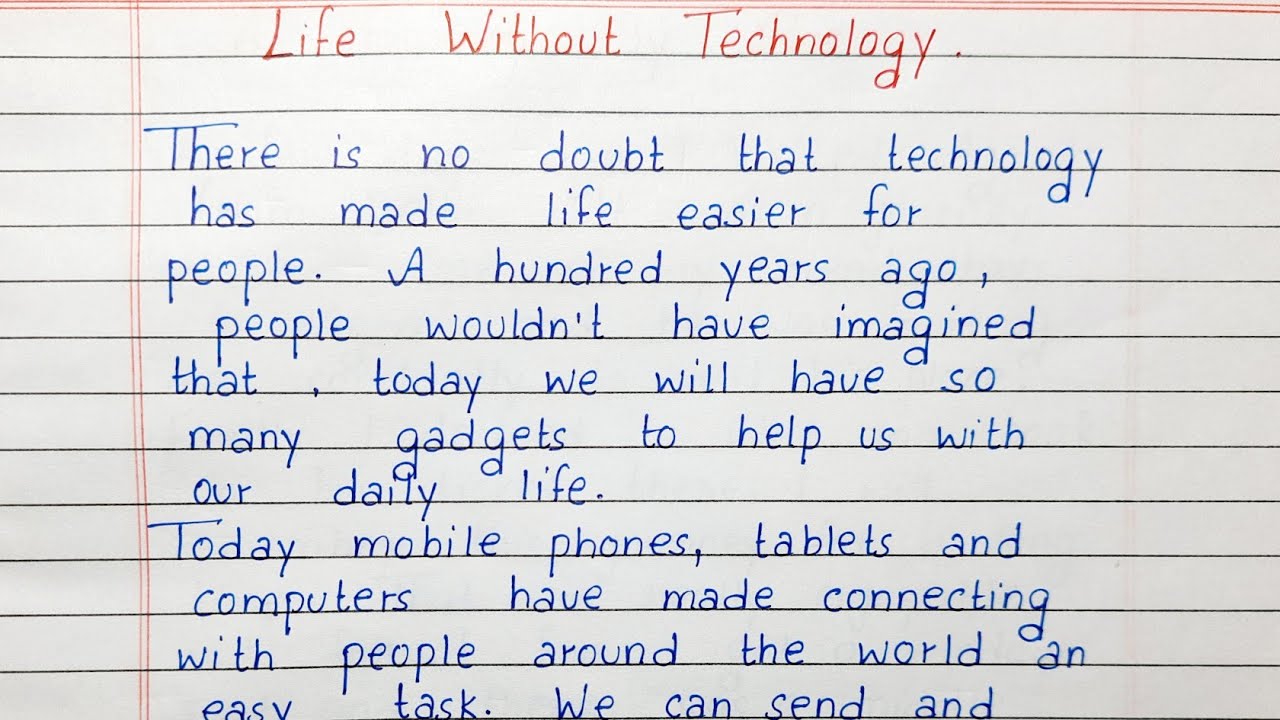 Life Without Technology.
There is no doubt that technology
has made life easier for
people. A hundred years ago,
people wouldn't have imagined
that, today we will have so
many gadgets to help us with
our daily life.
Today mobile phones, tablets and
computers have made connecting
with people around the world an
easy task. We can send and